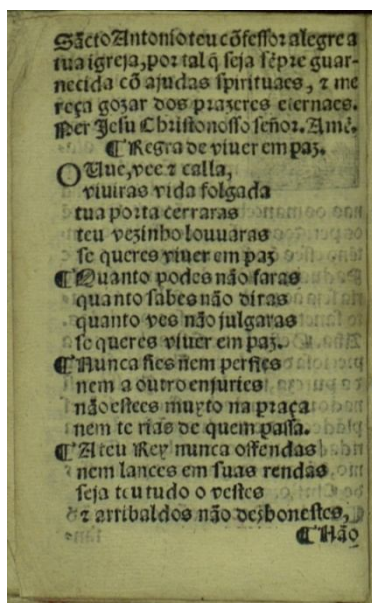 Sãcto Antonio teu cõfessor alegre a
tua igreja, por tal q̃ seja sẽpre guar-
necida cõ ajudas spirituaes, ⁊ me
reça gozar dos prazeres eternaes.
Per Jesu Christo nosso señor. Amẽ.
¶ Regra de viver em paz.
OUue, vee ⁊ calla,
viviras vida folgada
tua porta cerraras
teu vezinho louvaras
se queres viver em paz
¶ Quanto podes não faras
quanto sabes não diras
quanto ves não julgaras
se queres viver em paz.
¶ Nunca fies nem perfies
nem a outro enjuries
não estees muyto na praça
nem te rias de quem passa.
¶ A teu Rey nunca offendas
nem lances em suas rendas
seja teu tudo o vestes
⁊ arribaldos não dezhonestes,
¶ Não